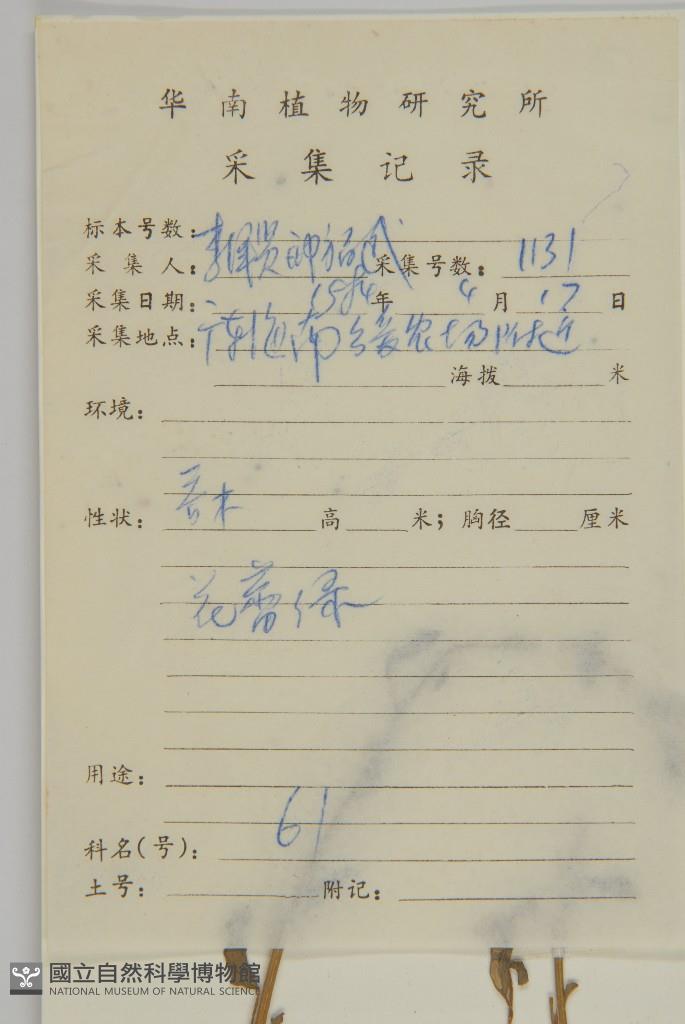 华南植物研究所
采集记录
标本号数：
采集人： 采集号数： 1131
采集日期： 年 4 月 17 日
采集地点： 海南 农场附近
海拨 米
环境：
性状： 乔木 高 米；胸径 厘米
花蕾绿
用途：
61
科名(号)：
土号： 附记：
國立自然科學博物館
NATIONAL MUSEUM OF NATURAL SCIENCE